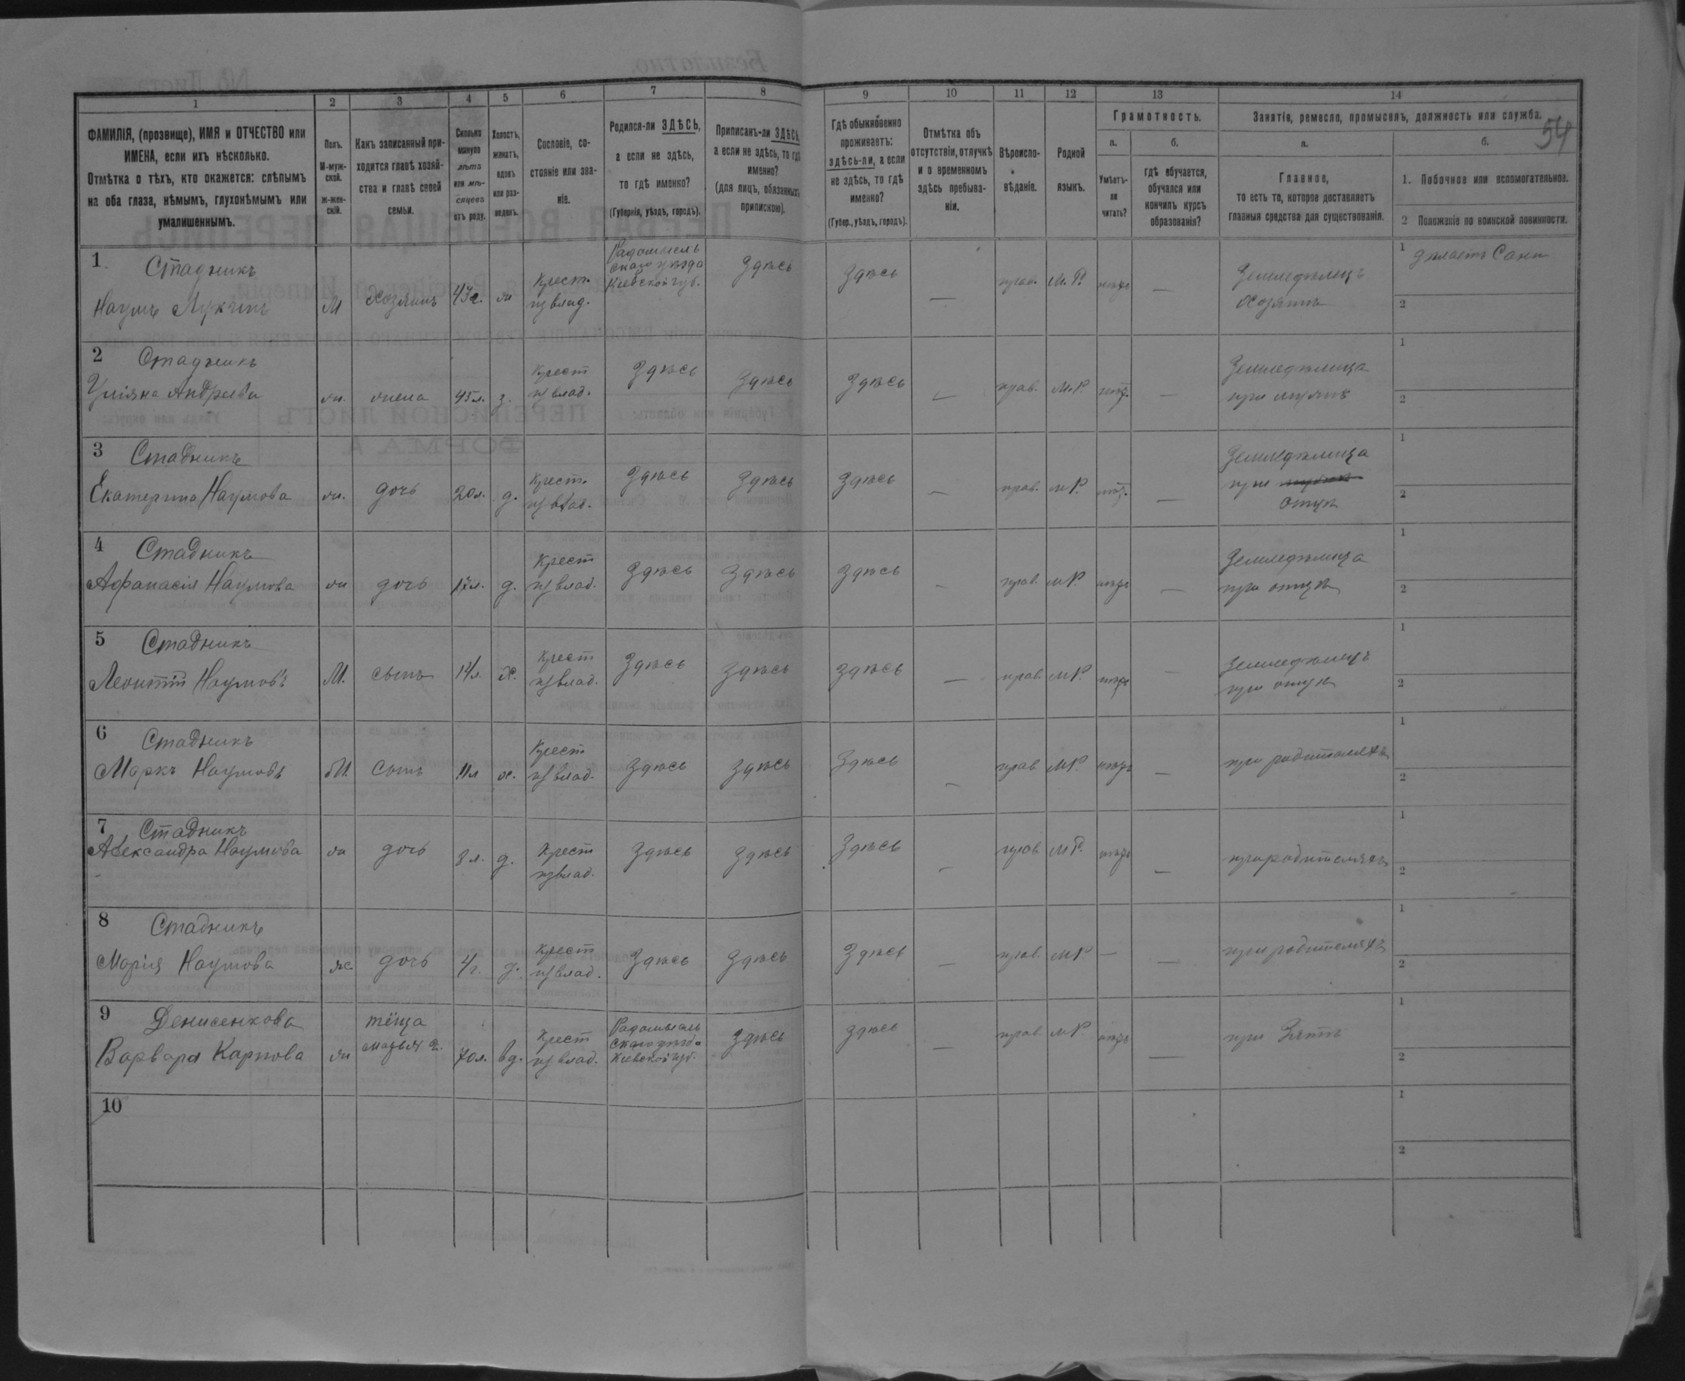 1 2 3 4 5 6 7 8 9 10 11 12 13 14
54
ФАМИЛІЯ, (прозвище), ИМЯ и ОТЧЕСТВО или
ИМЕНА, если ихъ нѣсколько.
Отмѣтка о тѣхъ, кто окажется: слѣпымъ
на оба глаза, нѣмымъ, глухонѣмымъ или
умалишеннымъ.
Полъ.
М-муж-
ской.
Ж-жен-
скій.
Какъ записанный при-
ходится главѣ хозяй-
ства и главѣ своей
семьи.
Сколько
минуло
лѣтъ
или мѣ-
сяцевъ
отъ роду.
Холостъ,
женатъ,
вдовъ
или раз-
веденъ.
Сословіе, со-
стояніе или зва-
ніе.
Родился-ли ЗДѢСЬ,
а если не здѣсь,
то гдѣ именно?
(Губернія, уѣздъ, городъ).
Приписанъ-ли ЗДѢСЬ,
а если не здѣсь, то гдѣ
именно?
(для лицъ, обязанныхъ
припискою).
Гдѣ обыкновенно
проживаетъ:
здѣсь-ли, а если
не здѣсь, то гдѣ
именно?
(Губер., уѣздъ, городъ).
Отмѣтка объ
отсутствіи, отлучкѣ
и о временномъ
здѣсь пребыва-
ніи.
Вѣроиспо-
вѣданіе.
Родной
языкъ.
Грамотность.
а.
Умѣетъ-
ли
читать?
б.
гдѣ обучается,
обучался или
кончилъ курсъ
образованія?
Занятіе, ремесло, промыселъ, должность или служба.
а.
Главное,
то есть то, которое доставляетъ
главныя средства для существованія.
б.
1. Побочное или вспомогательное.
2 Положеніе по воинской повинности.
1 Стадникъ
Наумъ Лукинъ
М Хозяинъ 43 г. ж
Крест.
изъ влад.
Радомысль
скаго уѣзда
Кіевской губ.
Здѣсь Здѣсь — прав. М.Р. нѣтъ —
Земледѣлецъ
Хозяинъ
1 дѣлаетъ Сани
2
2 Стадникъ
Уліяна Андреева
ж. жена 45 л. з.
Крест
из влад.
Здѣсь Здѣсь Здѣсь — прав. М.Р. нѣтъ. —
Земледѣлица
при мужѣ
1
2
3 Стадникъ
Екатерина Наумова
ж. дочь 20 л. д.
Крест.
из влад.
Здѣсь Здѣсь Здѣсь — прав. М.Р. нѣтъ. —
Земледѣлица
при
отцѣ
1
2
4 Стадникъ
Афанасія Наумова
ж дочь 17 л. д.
Крест
из влад.
Здѣсь Здѣсь Здѣсь — прав. М.Р. нѣтъ —
Земледѣлица
при отцѣ
1
2
5 Стадникъ
Леонтій Наумовъ
М. сынъ 14 л. х.
Крест
из влад.
Здѣсь Здѣсь Здѣсь — прав М.Р. нѣтъ —
Земледѣлецъ
при отцѣ
1
2
6 Стадникъ
Маркъ Наумовъ
М. сынъ 11 л х.
Крест
из влад.
Здѣсь Здѣсь Здѣсь — прав М.Р. нѣтъ —
при родителяхъ
1
2
7 Стадникъ
Александра Наумова
ж дочь 8 л. д.
Крест
из влад.
Здѣсь Здѣсь Здѣсь — прав М.Р. нѣтъ —
при родителяхъ
1
2
8 Стадникъ
Марія Наумова
ж. дочь 4 г. д.
Крест
из влад.
Здѣсь Здѣсь Здѣсь — прав. М.Р — —
при родителяхъ
1
2
9 Денисенкова
Варвара Карпова
ж
тёща
70 л. вд.
Крест
из влад.
Радомысль
скаго уѣзда
Кіевской губ.
Здѣсь Здѣсь — прав М.Р нѣтъ —
при Зятѣ
1
2
10
1
2